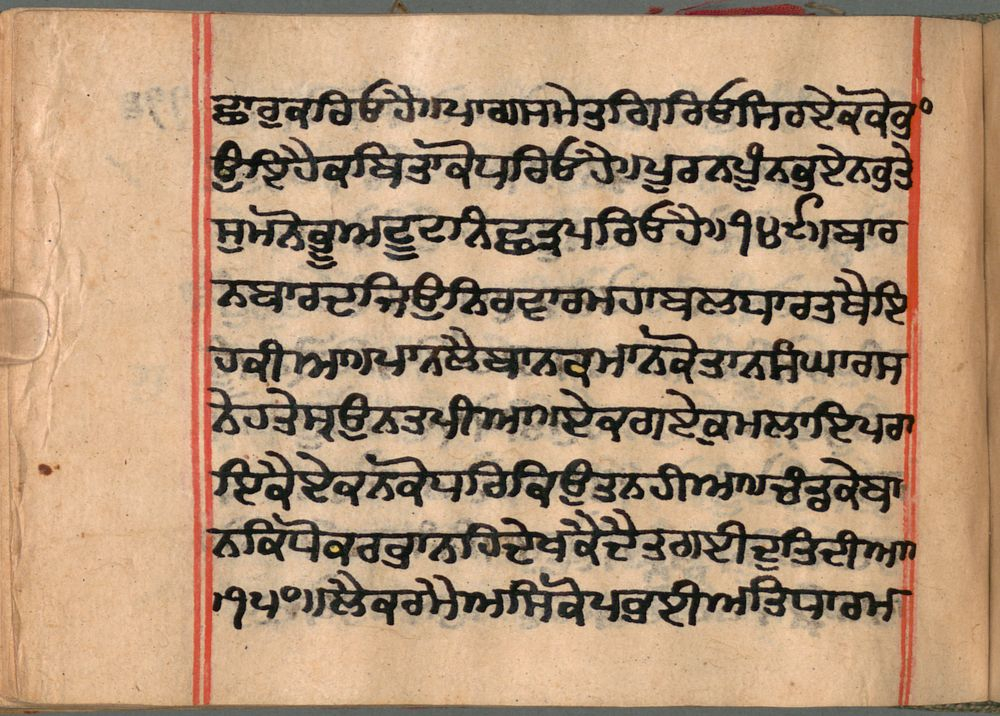 ਛਾਰੁਕਰਿਓਹੈ॥ਪਾਗਸਮੇਤੁਗਿਰਿਓਸਿਰਏਕਕੋਕੁੰ
ਉਇਹੈਕਬਿਤਾਕੋਧਰਿਓਹੈ॥ਪੂਰਨਪੁੰਨਕੁਏਨਕੁਤੇ
ਸੁਮਨੋਭੂਅਟੂਟਨਿਛਤ੍ਰਪਰਿਓਹੈ॥੧੪੯॥ਬਾਰ
ਨਬਾਰਦਜਿਉਨਿਰਵਾਰਮਹਾਬਲਧਾਰਤਬੈਇ
ਹਕੀਆ॥ਪਾਨਲੈਬਾਨਕਮਾਨਕੋਤਾਨਸੰਘਾਰਸ
ਨੇਹਤੇਸ੍ਰਉਨਤਪੀਆ॥ਏਕਗਏਕੁਮਲਾਇਪਰਾ
ਇਕੈਏਕਨਕੋਧਰਿਕਿਉਤਨਹੀਆ॥ਚੰਡਕੇਬਾ
ਨਕਿਧੋਕਰਭਾਨਹਿਦੇਖਕੈਦੈਤਗਈਦੁਤਿਦੀਆ॥
॥੧੫੦॥ਲੈਕਰਮੈਅਸਿਕੋਪਭਈਅਤਿਧਾਰਮ